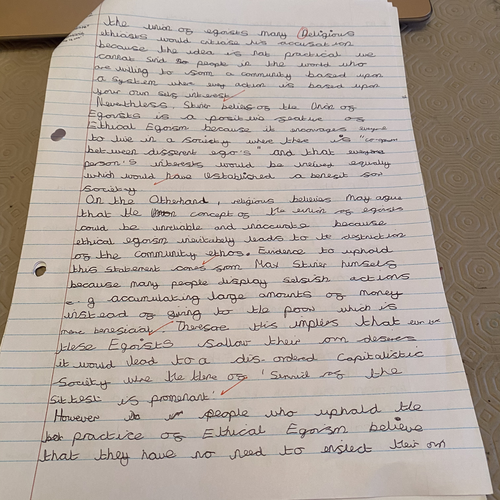 the union of egoists many Religious
ethiasts would critise his accusation
because the idea is not practical we
cannot find 50 people in the world who
are willing to form a community based upon
a system where every action is based upon
your own self interest.
Nevertheless, Stirner belives of the Union of
Egoists is a positive feature of
Ethical Egoism because it encourages everyone
to live in a society where there is "co-operation
between different ego's" and that everyone
person's interests would be viewed equally
which would have established a benefit for
society.
On the Otherhand, religious believes may argue
that the concept of the union of egoists
could be unreliable and inaccurate because
ethical egoism inevitably leads to te distruction
of the community ethos. Evidence to uphold
this statement comes from Max Stirner himself
because many people display selfish actions
e.g accumulating large amounts of money
instead of giving to the poor which is
more beneficial. Therefore this impliers that
these Egoists follow their own desires
it would lead to a dis-ordered Capitalistic
Society were the theme of 'Survival of the
fittest is promenant.'
However people who uphold the
practice of Ethical Egoism believe
that they have no need to neglect their own